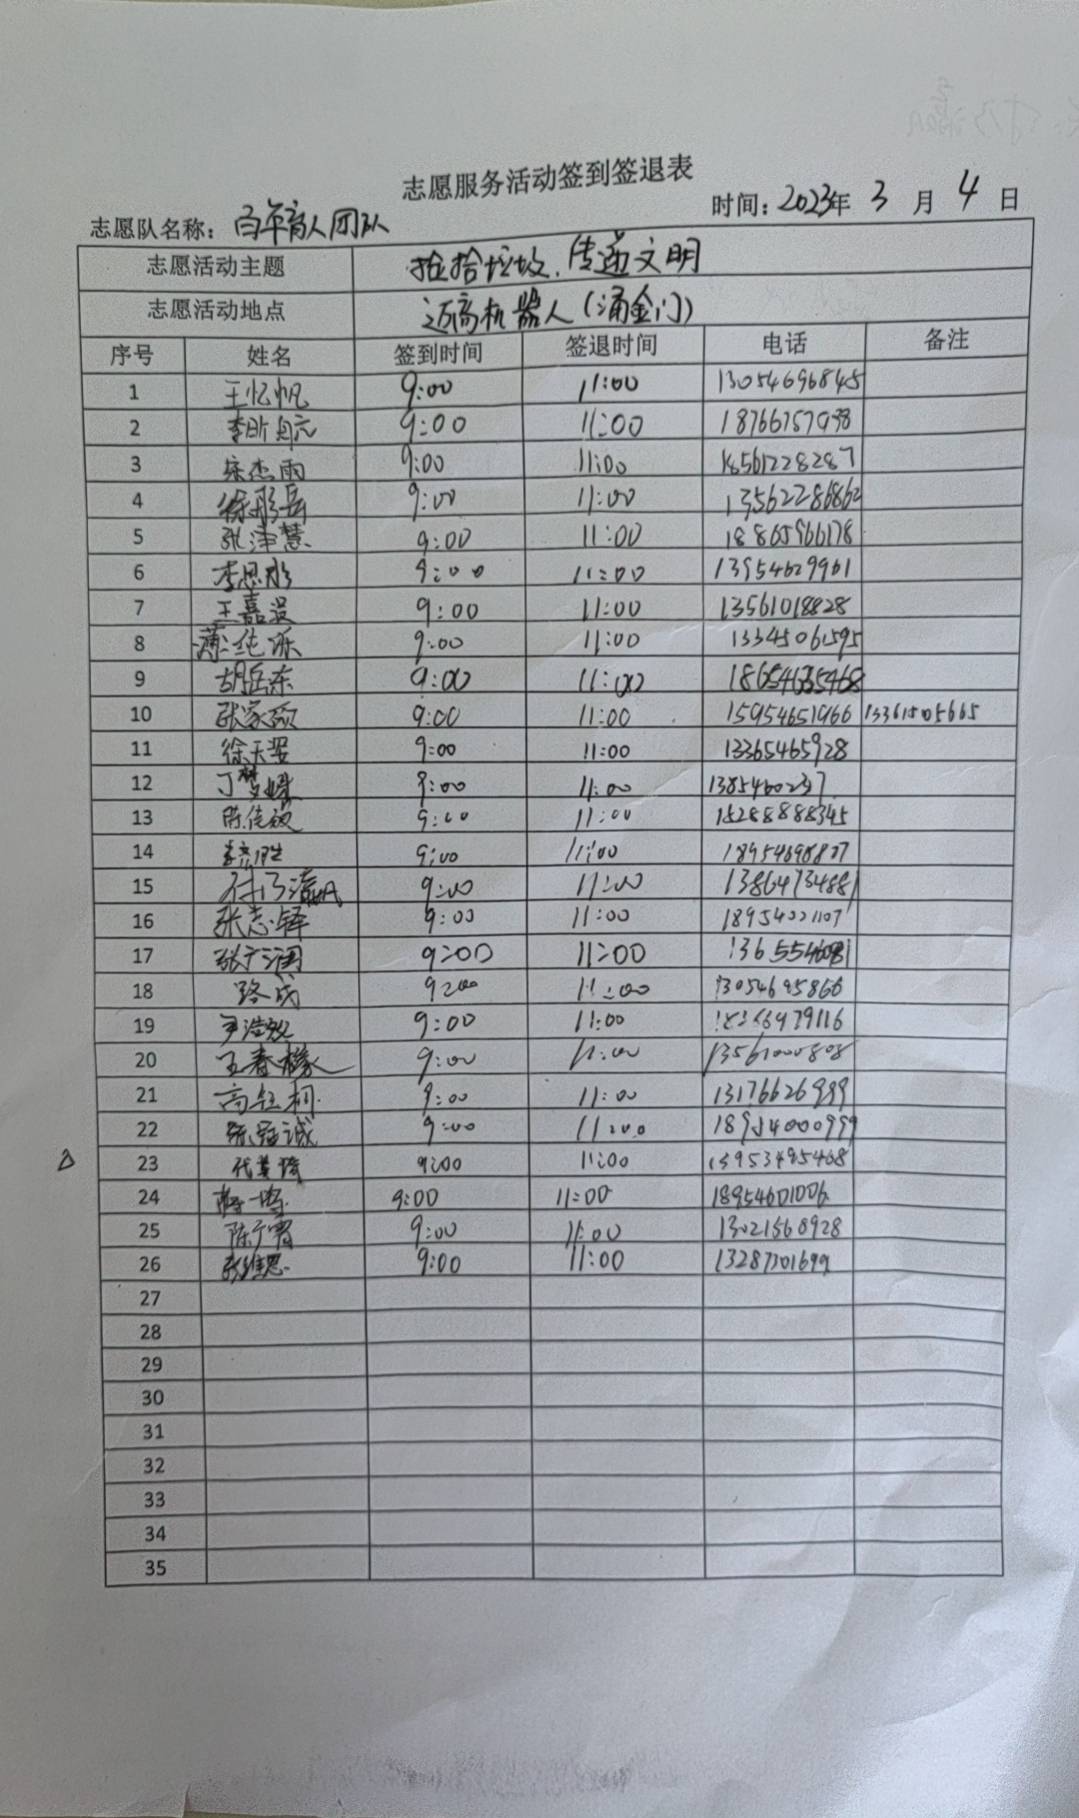 志愿服务活动签到签退表
志愿队名称：百年育人团队 时间：2023年 3 月 4 日
志愿活动主题 捡拾垃圾，传递文明
志愿活动地点 迈高机器人（涌金门）
序号 姓名 签到时间 签退时间 电话 备注
1 王忆帆 9:00 11:00 13054696845
2 9:00 11:00
3 宋杰雨 9:00 11:00 18561228287
4 徐彤岳 9:00 11:00 13562286862
5 张津慧 9:00 11:00 18865966178
6 李思彤 9:00 11:00 13954629961
7 王嘉淏 9:00 11:00 13561018828
8 薄纯泺 9:00 11:00 13345061595
9 胡岳东 9:00 11:00 18654635468
10 张家硕 9:00 11:00 15954651966 13361505665
11 徐天翌 9:00 11:00 13365465928
12 丁梦蝶 9:00 11:00
13 陈信毅 9:00 11:00 15288888345
14 9:00 11:00 18954698807
15 9:00 11:00 13864734881
16 张志铎 9:00 11:00 18954021107
17 张广润 9:00 11:00
18 路成 9:00 11:00 13054695866
19 尹浩毅 9:00 11:00
20 王春檬 9:00 11:00 13561000808
21 高钰桐 9:00 11:00 13176626989
22 张冠诚 9:00 11:00 18954000999
23 代黄琦 9:00 11:00 13953495468
24 9:00 11:00 18954601006
25 陈广霄 9:00 11:00 13021568928
26 张维恩 9:00 11:00 13287301699
27
28
29
30
31
32
33
34
35